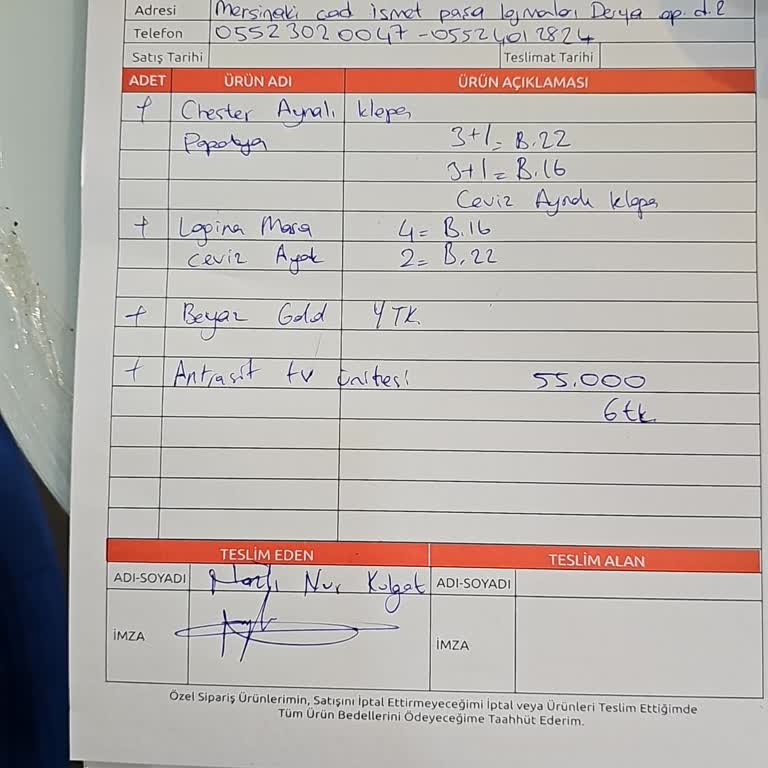 Adresi Mersinaki cad ismet paşa lojmaları Derya ap. d.2
Telefon 05523020047 - 05524012824
Satış Tarihi Teslimat Tarihi
ADET ÜRÜN ADI ÜRÜN AÇIKLAMASI
+ Chester Aynalı klepa
Papatya 3+1= B.22
3+1= B.16
Ceviz Aynalı klapa
+ Lapina Masa 4= B.16
Ceviz Ayak 2= B.22
+ Beyaz Gold YTK.
+ Antrasit tv ünitesi 55.000
6tk.
TESLİM EDEN TESLİM ALAN
ADI-SOYADI Nazlı Nur Kulget ADI-SOYADI
İMZA İMZA
Özel Sipariş Ürünlerimin, Satışını İptal Ettirmeyeceğimi İptal veya Ürünleri Teslim Ettiğimde
Tüm Ürün Bedellerini Ödeyeceğime Taahhüt Ederim.